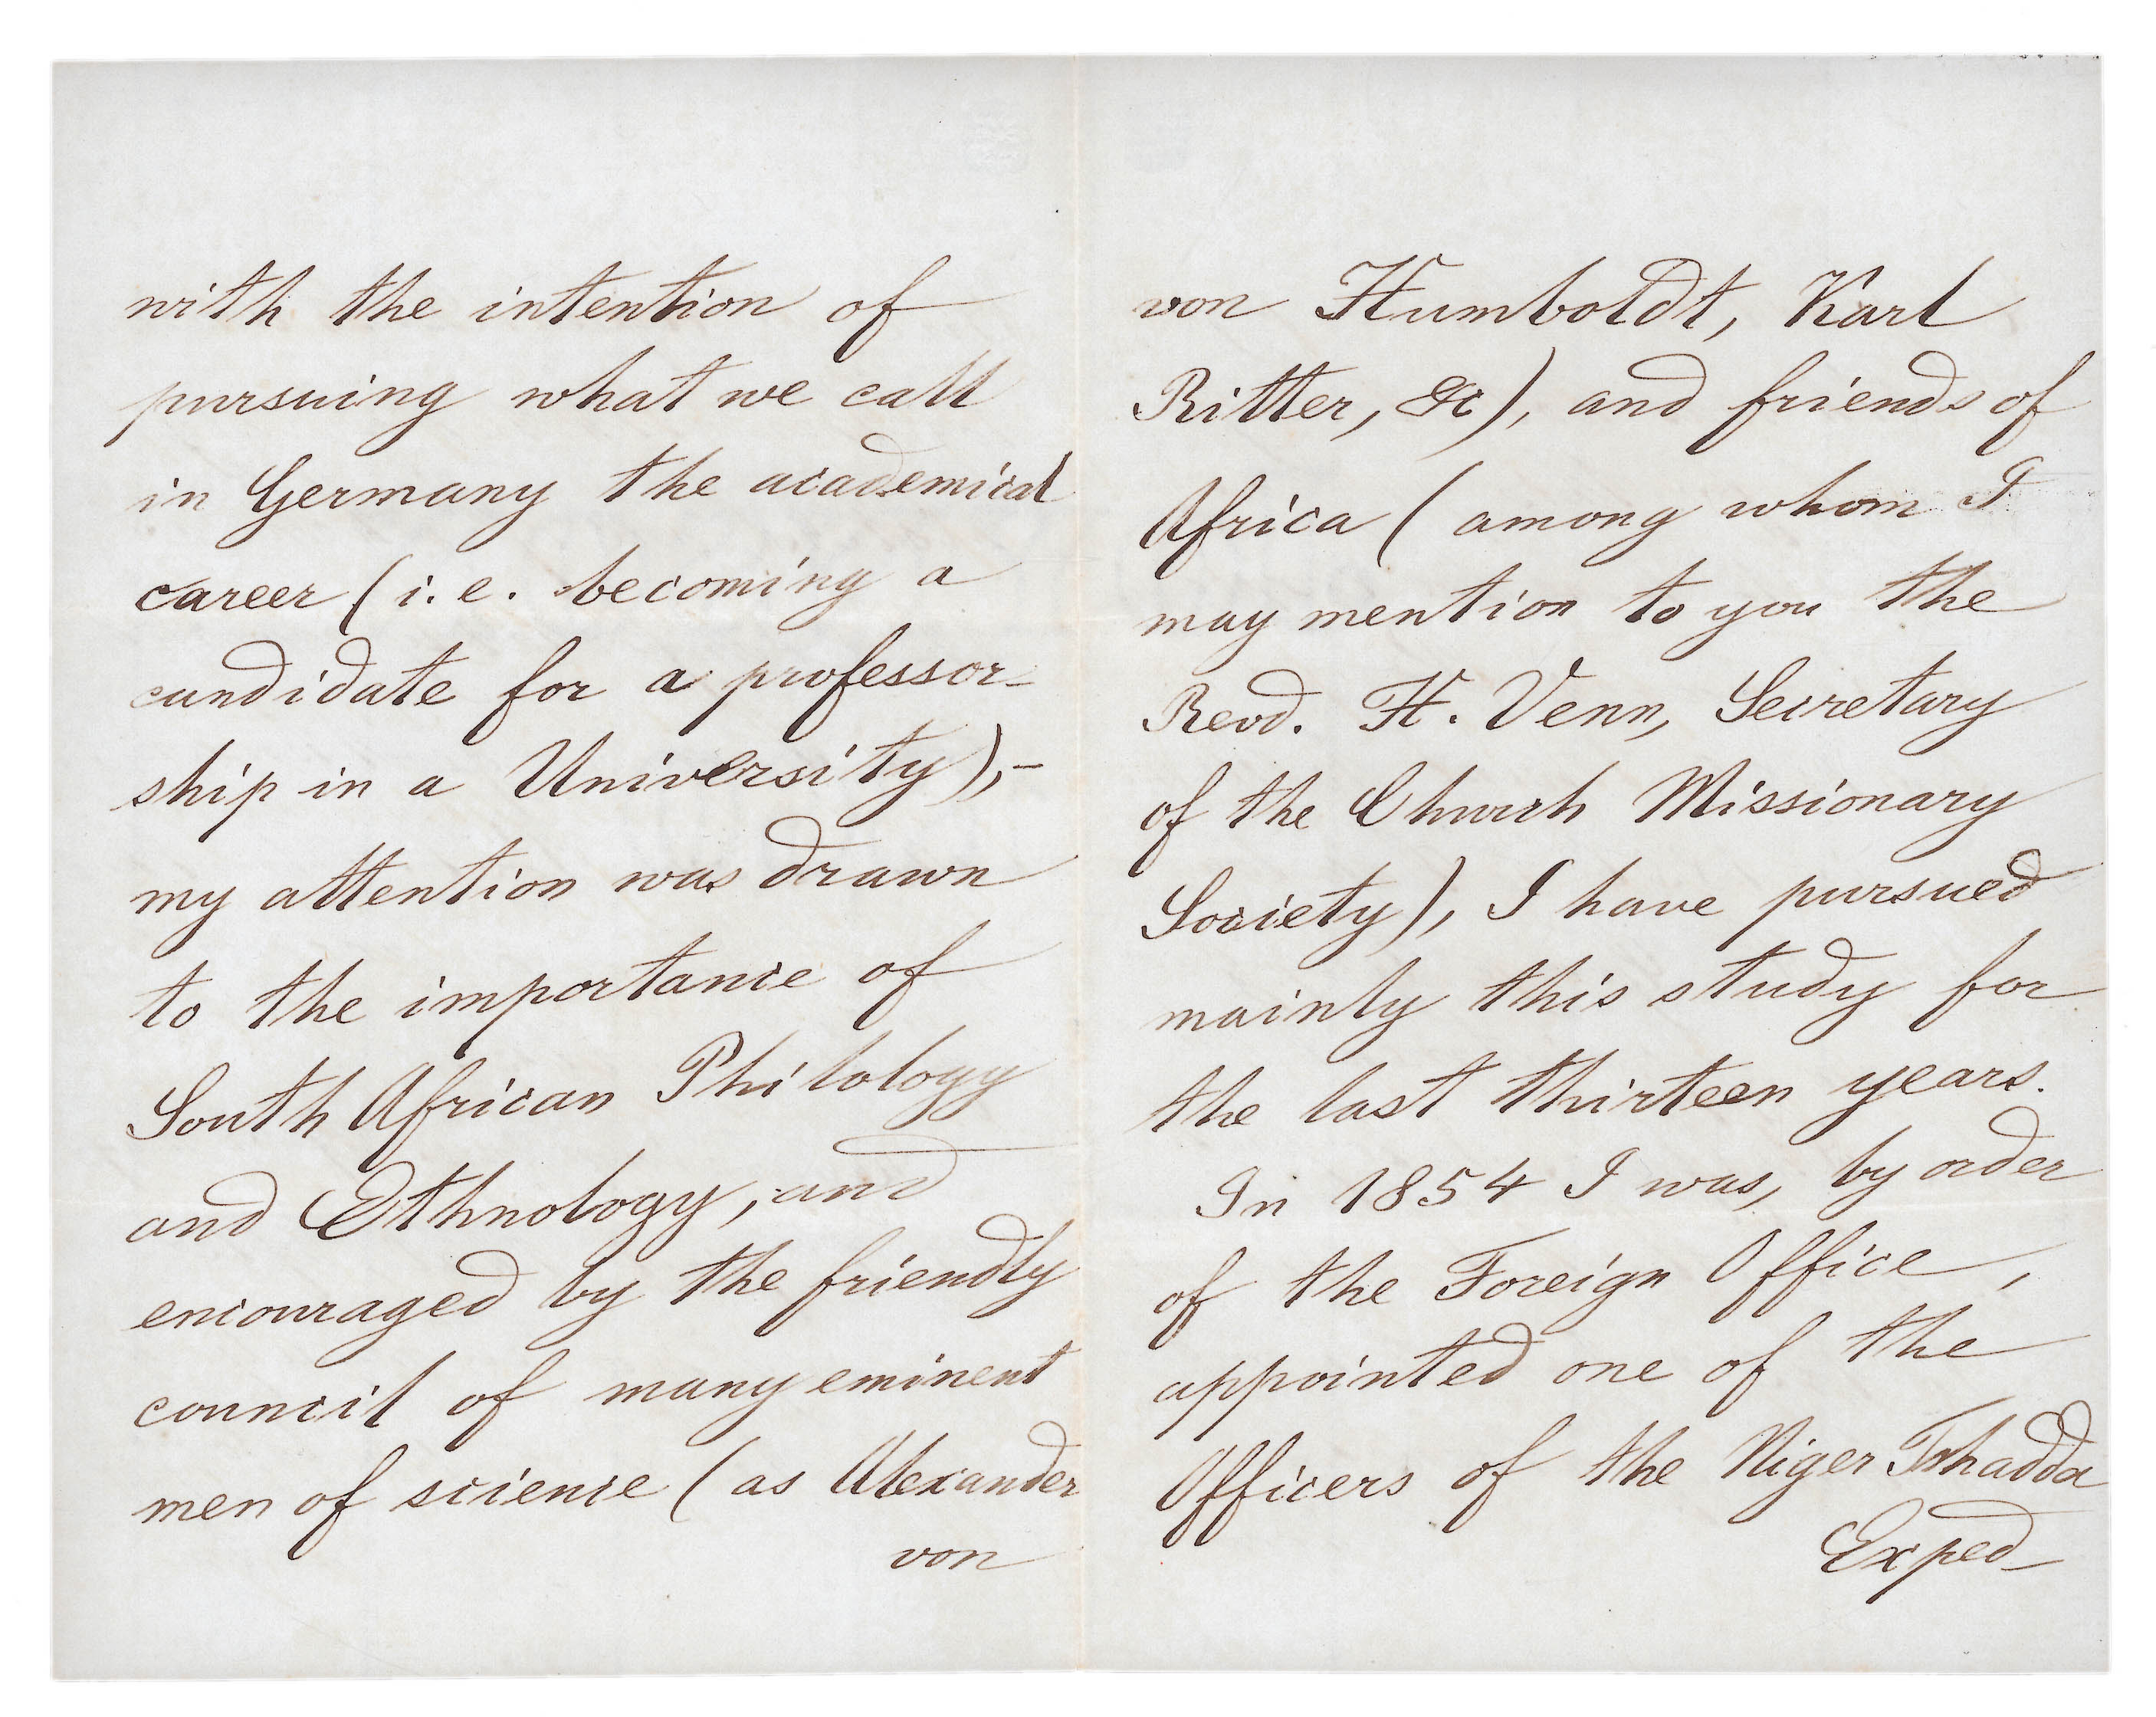 with the intention of
pursuing what we call
in Germany the academical
career (i.e. becoming a
candidate for a professor-
ship in a University),-
my attention was drawn
to the importance of
South African Philology
and Ethnology, and
encouraged by the friendly
council of many eminent
men of science (as Alexander
von
von Humboldt, Karl
Ritter, &c), and friends of
Africa (among whom I
may mention to you the
Revd. H. Venn, Secretary
of the Church Missionary
Society), I have pursued
mainly this study for
the last thirteen years.
In 1854 I was, by order
of the Foreign Office,
appointed one of the
Officers of the Niger Tshadda
Exped-